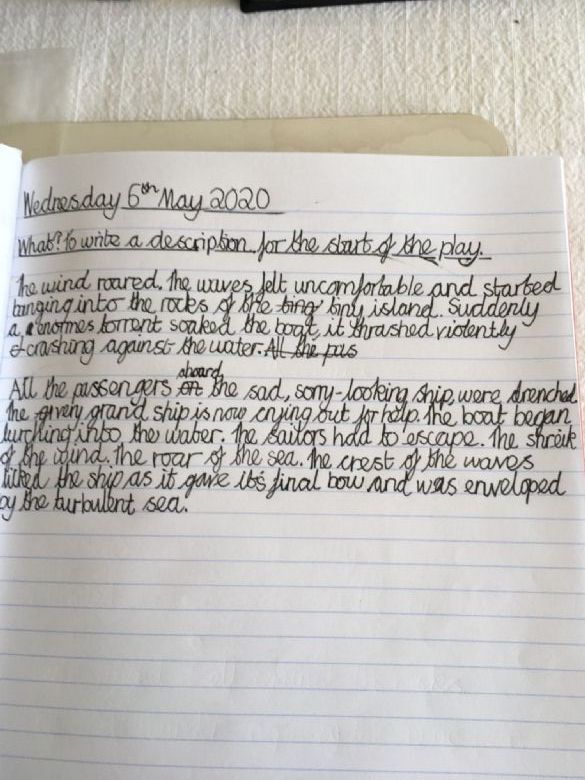 Wednesday 6th May 2020
What? To write a description for the start of the play.
The wind roared. The waves felt uncomfortable and started
banging into the rocks of the ting tiny island. Suddenly
a enormes torrent soaked the boat, it thrashed violently
& crashing against the water. All the pas
All the passengers on aboard the sad, sorry-looking ship, were drenched.
The very grand ship is now crying out for help. The boat began
lurching into the water. The sailors had to escape. The shreik
of the wind. The roar of the sea. The crest of the waves
licked the ship as it gave its final bow and was enveloped
by the turbulent sea.